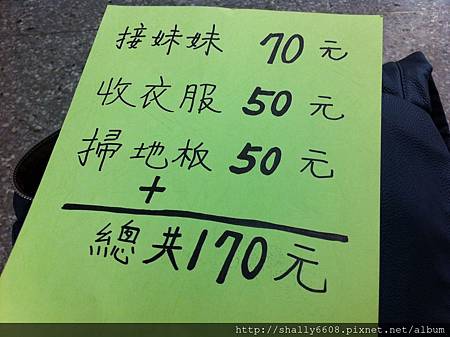 接妹妹 70 元
收衣服 50 元
掃地板 50 元
+
總共170元
http://shally6608.pixnet.net/album